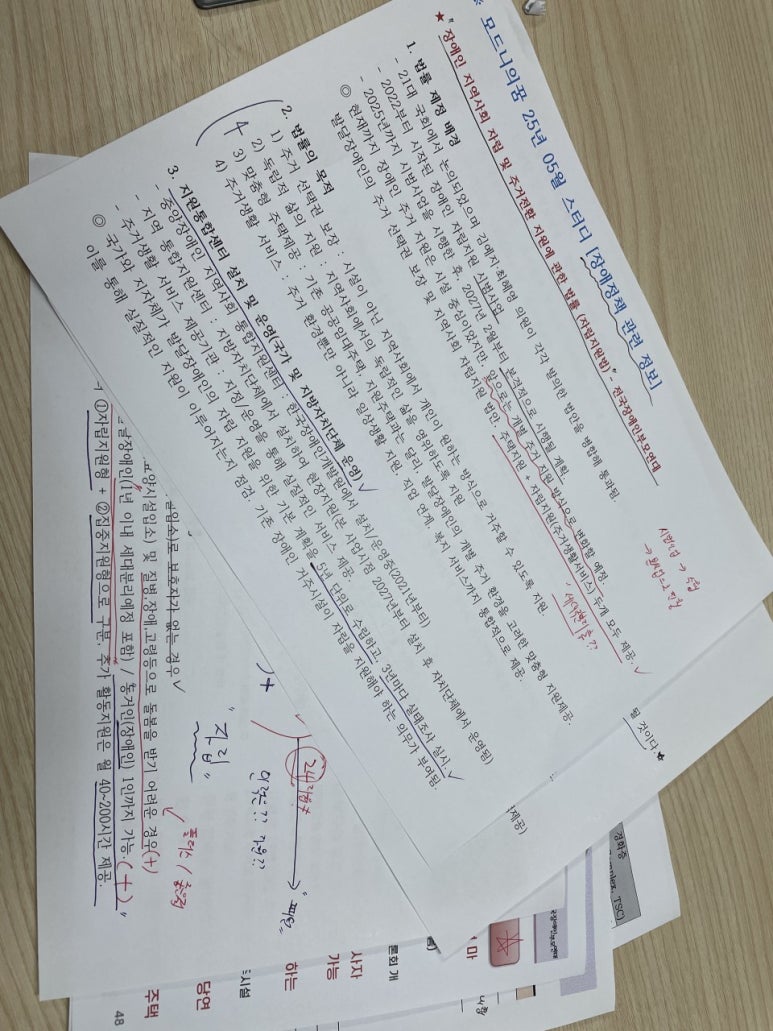 * 모드니의꿈 25년 05월 스터디 [장애정책 관련 정보]
★ "장애인 지역사회 자립 및 주거전환 지원에 관한 법률 (자립지원법)" - 전국장애인부모연대
1. 법률 제정 배경
- 21대 국회에서 논의되었으며 김예지·최혜영 의원이 각각 발의한 법안을 병합해 통과됨
- 2022부터 시작된 장애인 자립지원 시범사업
- 2025년까지 시범사업을 시행한 후, 2027년 2월부터 본격적으로 시행될 계획
◎ 현재까지 장애인 주거 지원은 시설 중심이었지만, 앞으로는 개별 주거 지원 방식으로 변화할 예정.
발달장애인의 주거 선택권 보장 및 지역사회 자립지원 법안. 주택지원 + 자립지원(주거생활서비스) 두개 모두 제공. ✓
시범사업 →
→
??
2. 법률의 목적
4
1) 주거 선택권 보장 : 시설이 아닌 지역사회에서 개인이 원하는 방식으로 거주할 수 있도록 지원.
2) 독립적 삶의 지원 : 지역사회에서의 독립적인 삶을 영위하도록 지원
3) 맞춤형 주택제공 : 기존 공공임대주택, 지원주택과는 달리, 발달장애인의 개별 주거 환경을 고려한 맞춤형 지원제공.
4) 주거생활 서비스 : 주거 환경뿐만 아니라 일상생활 지원, 직업 연계, 복지 서비스까지 통합적으로 제공.
3. 지원통합센터 설치 및 운영(국가 및 지방자치단체 운영) ✓
- 중앙장애인 지역사회 통합지원센터 : 한국장애인개발원에서 설치/운영중(2021년부터)
- 지역 통합지원센터 : 지방자치단체에서 설치하여 현장지원(본 사업누정 2027년부터 설치 후 자치단체에서 운영됨)
- 주거생활 서비스 제공기관 : 지정 운영을 통해 실질적인 서비스 제공.
◎ 국가와 지자체가 발달장애인의 자립 지원을 위한 기본 계획을 5년 단위로 수립하고, 3년마다 실태조사 실시. ✓
이를 통해 실질적인 지원이 이루어지는지 점검. 기존 장애인 거주시설이 자립을 지원해야 하는 의무가 부여됨.
될 것이다.★
제공)
로 보호자가 없는 경우 ✓
요양시설입소) 및 질병,장애,고령등으로 돌봄을 받기 어려운 경우(+)
달장애인(1년 이내 세대분리예정 포함) / 동거인(장애인) 1인까지 가능 (+) "
①자립지원형 + ②집중지원형으로 구분, 추가 활동지원은 월 40~200시간 제공.
) +
"자립"
24
"
??
??
정화증
omplex, TSC)
마
론회 개
사자
가능
하는
시설
당연
주택
48